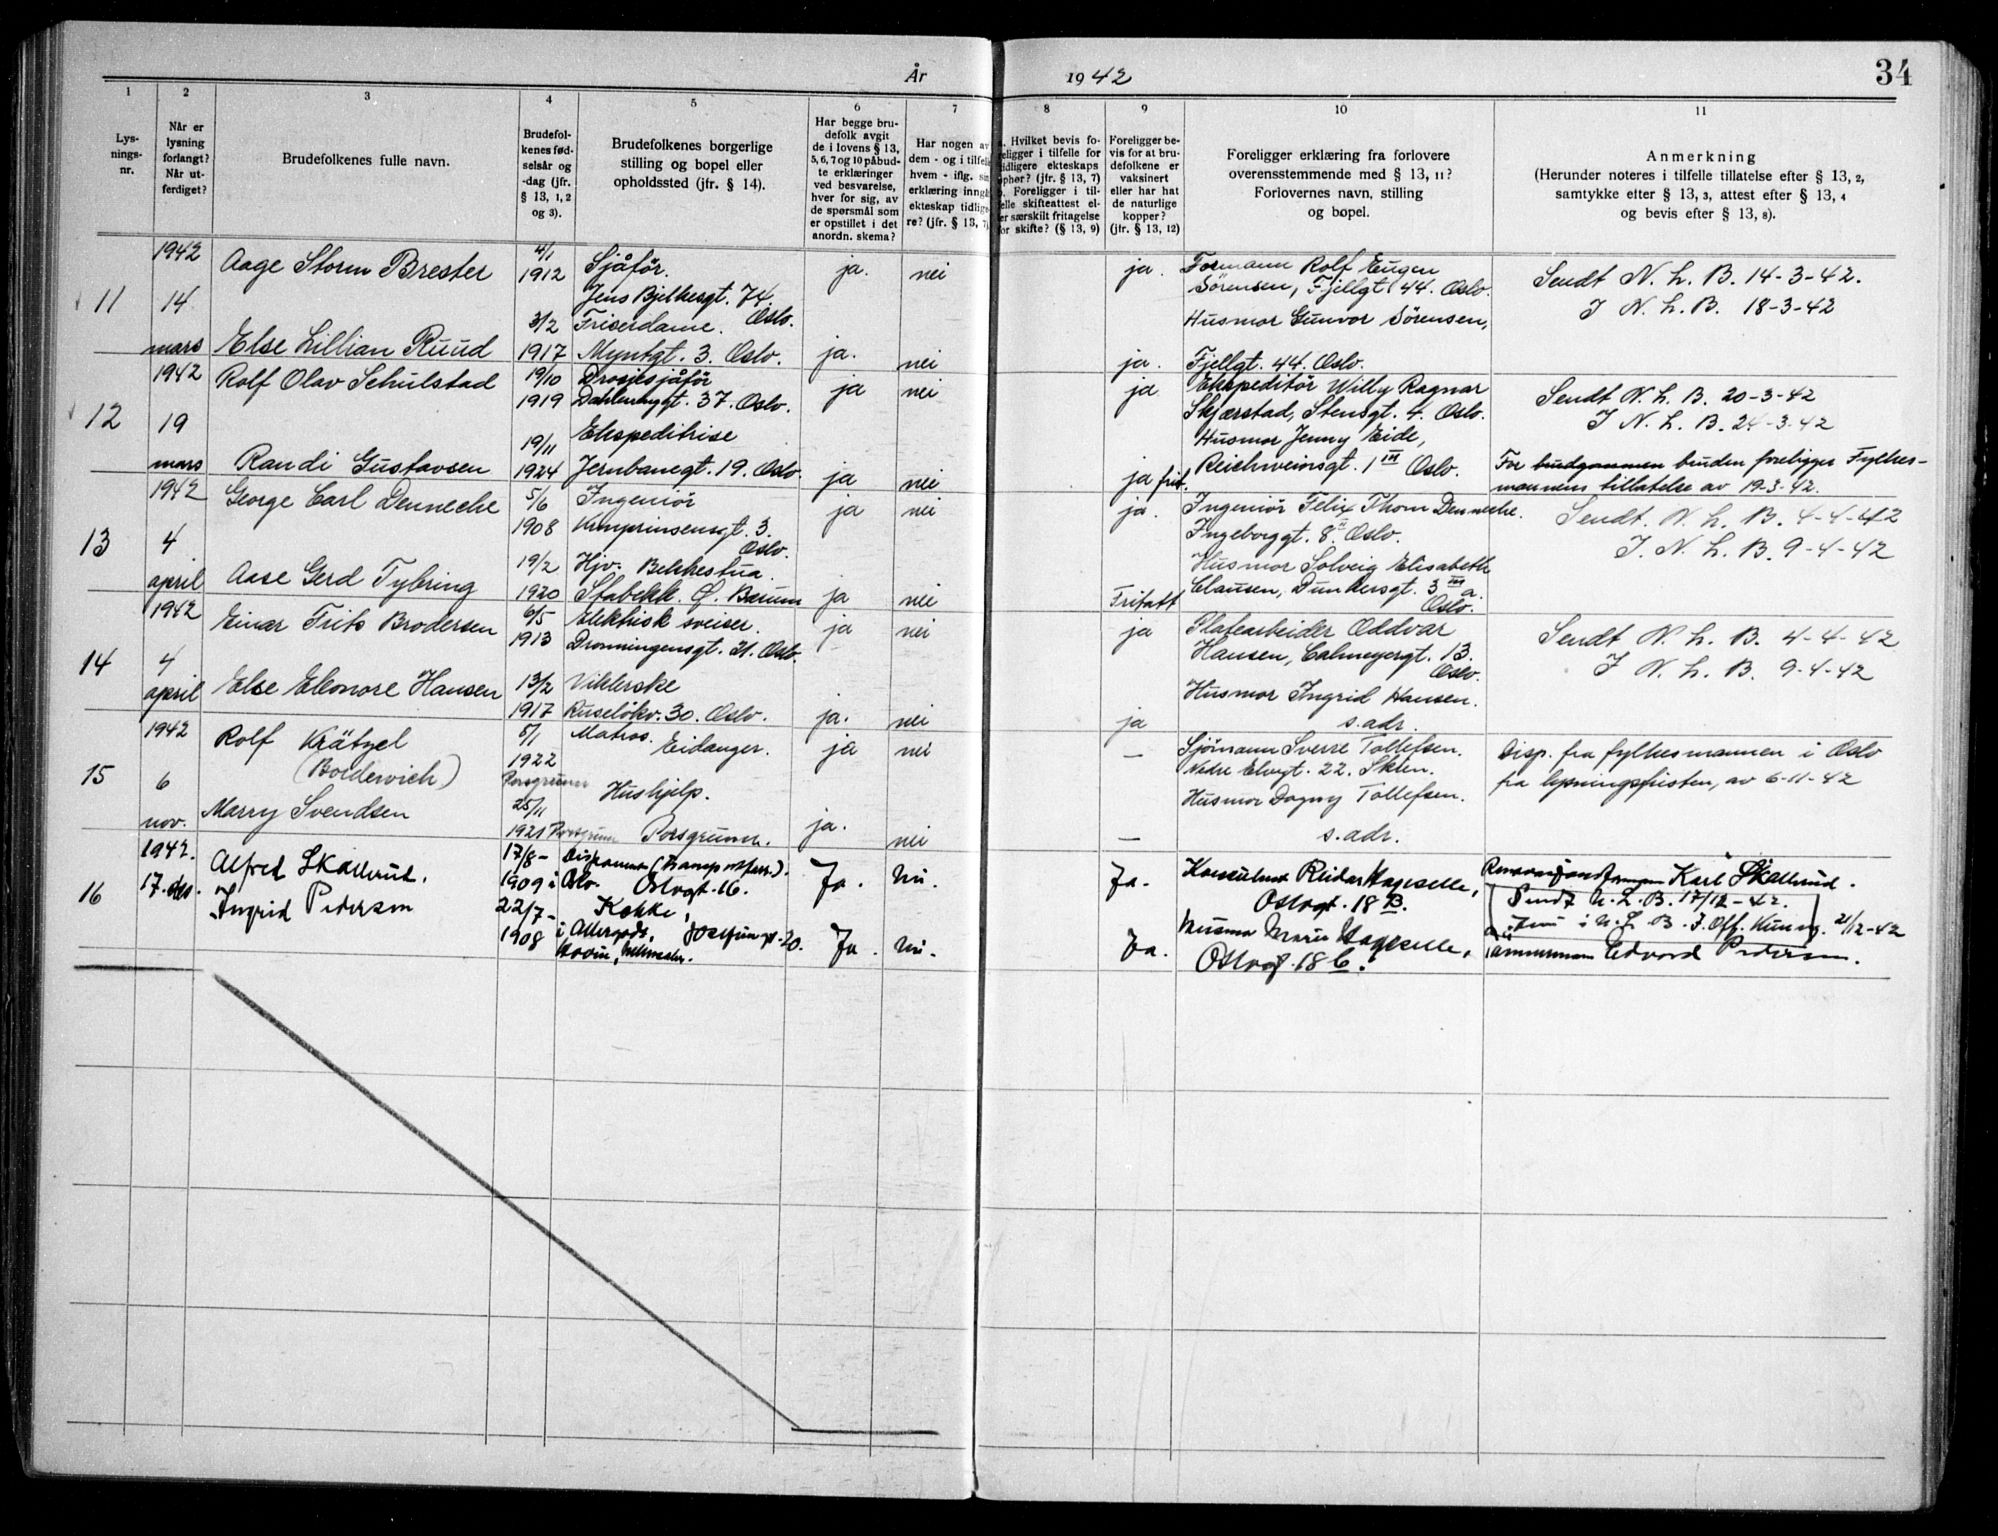 År 1942
34
1
2
3
4
5
6
7
8
9
10
11
Lys-
nings-
nr.
Når er
lysning
forlangt?
Når ut-
ferdiget?
Brudefolkenes fulle navn.
Brudefol-
kenes fød-
selsår og
-dag (jfr.
§ 13, 1, 2
og 3).
Brudefolkenes borgerlige
stilling og bopel eller
opholdssted (jfr. § 14).
Har begge bru-
defolk avgit
de i lovens § 13,
5, 6, 7 og 10 påbud-
te erklæringer
ved besvarelse,
hver for sig, av
de spørsmål som
er opstillet i det
anordn. skema?
Har nogen av
dem - og i tilfelle
hvem - iflg. sin
erklæring inngå
ekteskap tidlige-
re? (jfr. § 13, 7)
Hvilket bevis fo-
religger i tilfelle for
tidligere ekteskaps
ophør? (jfr. § 13, 7)
Foreligger i til-
felle skifteattest el-
ler særskilt fritagelse
for skifte? (§ 13, 9)
Foreligger be-
vis for at bru-
defolkene er
vaksinert
eller har hat
de naturlige
kopper?
(jfr. § 13, 12)
Foreligger erklæring fra forlovere
overensstemmende med § 13, 11?
Forlovernes navn, stilling
og bopel.
Anmerkning
(Herunder noteres i tilfelle tillatelse efter § 13, 2,
samtykke efter § 13, 3, attest efter § 13, 4
og bevis efter § 13, 8).
11
1942
14
mars
Aage Storm Brester
4/1
1912
Sjåfør.
Jens Bjelkesgt. 74.
Oslo.
ja.
nei
ja.
Formann Rolf Eugen
Sørensen, Fjellgt 44. Oslo.
Sendt N. L. B. 14-3-42.
I N. L. B. 18-3-42
Else Lillian Ruud
3/2
1917
Friserdame.
Myntgt. 3. Oslo.
ja.
nei
ja.
Husmor Gunvor Sørensen,
Fjellgt. 44. Oslo.
12
1942
19
mars
Rolf Olav Schulstad
19/10
1919
Drosjesjåfør
37. Oslo.
ja
nei
ja
Ekspeditør Willy Ragnar
Skjærstad, Stensgt. 4. Oslo.
Sendt N. L. B. 20-3-42
I N. L. B. 24-3-42
Randi Gustavsen
19/11
1924
Ekspeditrise
Jernbanegt. 19. Oslo.
ja
nei
ja frit.
Husmor Jenny Eide,
Reichweinsgt. 1 III Oslo.
For brudgommen bruden foreligger Fylkes-
mannens tillatelse av 19-3-42.
13
1942
4
april
George Carl Denneche
5/6
1908
Ingeniør
Kronprinsensgt. 3.
Oslo.
ja
nei
ja.
Ingeniør Felix Thom Denneche.
Ingeborggt. 8 II Oslo.
Sendt. N. L. B. 4-4-42
I. N. L. B. 9-4-42
Aase Gerd Tybring
19/2
1920
Hjv. Bekkestua.
Stabekk. Ø. Bærum
ja
nei
Fritatt
Husmor Solveig Elisabeth
Clausen, Dunkersgt. 3 III a.
Oslo.
14
1942
4
april
Einar Frits Brodersen
6/5
1913
Elektrisk sveiser.
Dronningensgt. 21. Oslo.
ja
nei
ja
Platearbeider Oddvar
Hansen, Calmeyergt. 13.
Oslo.
Sendt N. L. B. 4-4-42
I N. L. B. 9-4-42
Else Eleonore Hansen
13/2
1917
Viklerske
Ruseløkv. 30. Oslo.
ja.
nei
ja
Husmor Ingrid Hansen.
s. adr.
15
1942
6
nov.
Rolf Krätzel
(Bordervich)
5/1
1922
Porsgrunn
Matros.
Eidanger.
ja
nei
—
Sjømann Sverre Tollefsen.
Nedre Elvegt. 22. Skien.
Disp. fra fylkesmannen i Oslo
fra lysningsfristen, av 6-11-42
Marry Svendsen
25/11
1921 Porsgrunn
Hushjelp.
Porsgrunn.
ja.
nei
—
Husmor Dagny Tollefsen.
s. adr.
16
1942.
17. des.
Alfred Skallerud.
17/8 -
1909 i Oslo.
Oslogt. 16.
Ja.
Nei.
Ja.
Konsulent Reidar Hageselle,
Oslogt. 18 B.
Karl Skallerud.
Sendt N. L. B. 17/12-42.
i N. L. B. I. Off. Kunng. 21/12-42
Ingrid Pedersen
22/7 -
1908
Kokke,
20.
Ja.
Nei.
Ja.
Husmor Marie Hageselle,
Oslogt. 18 b.
Tømmermann Edvard Pedersen.